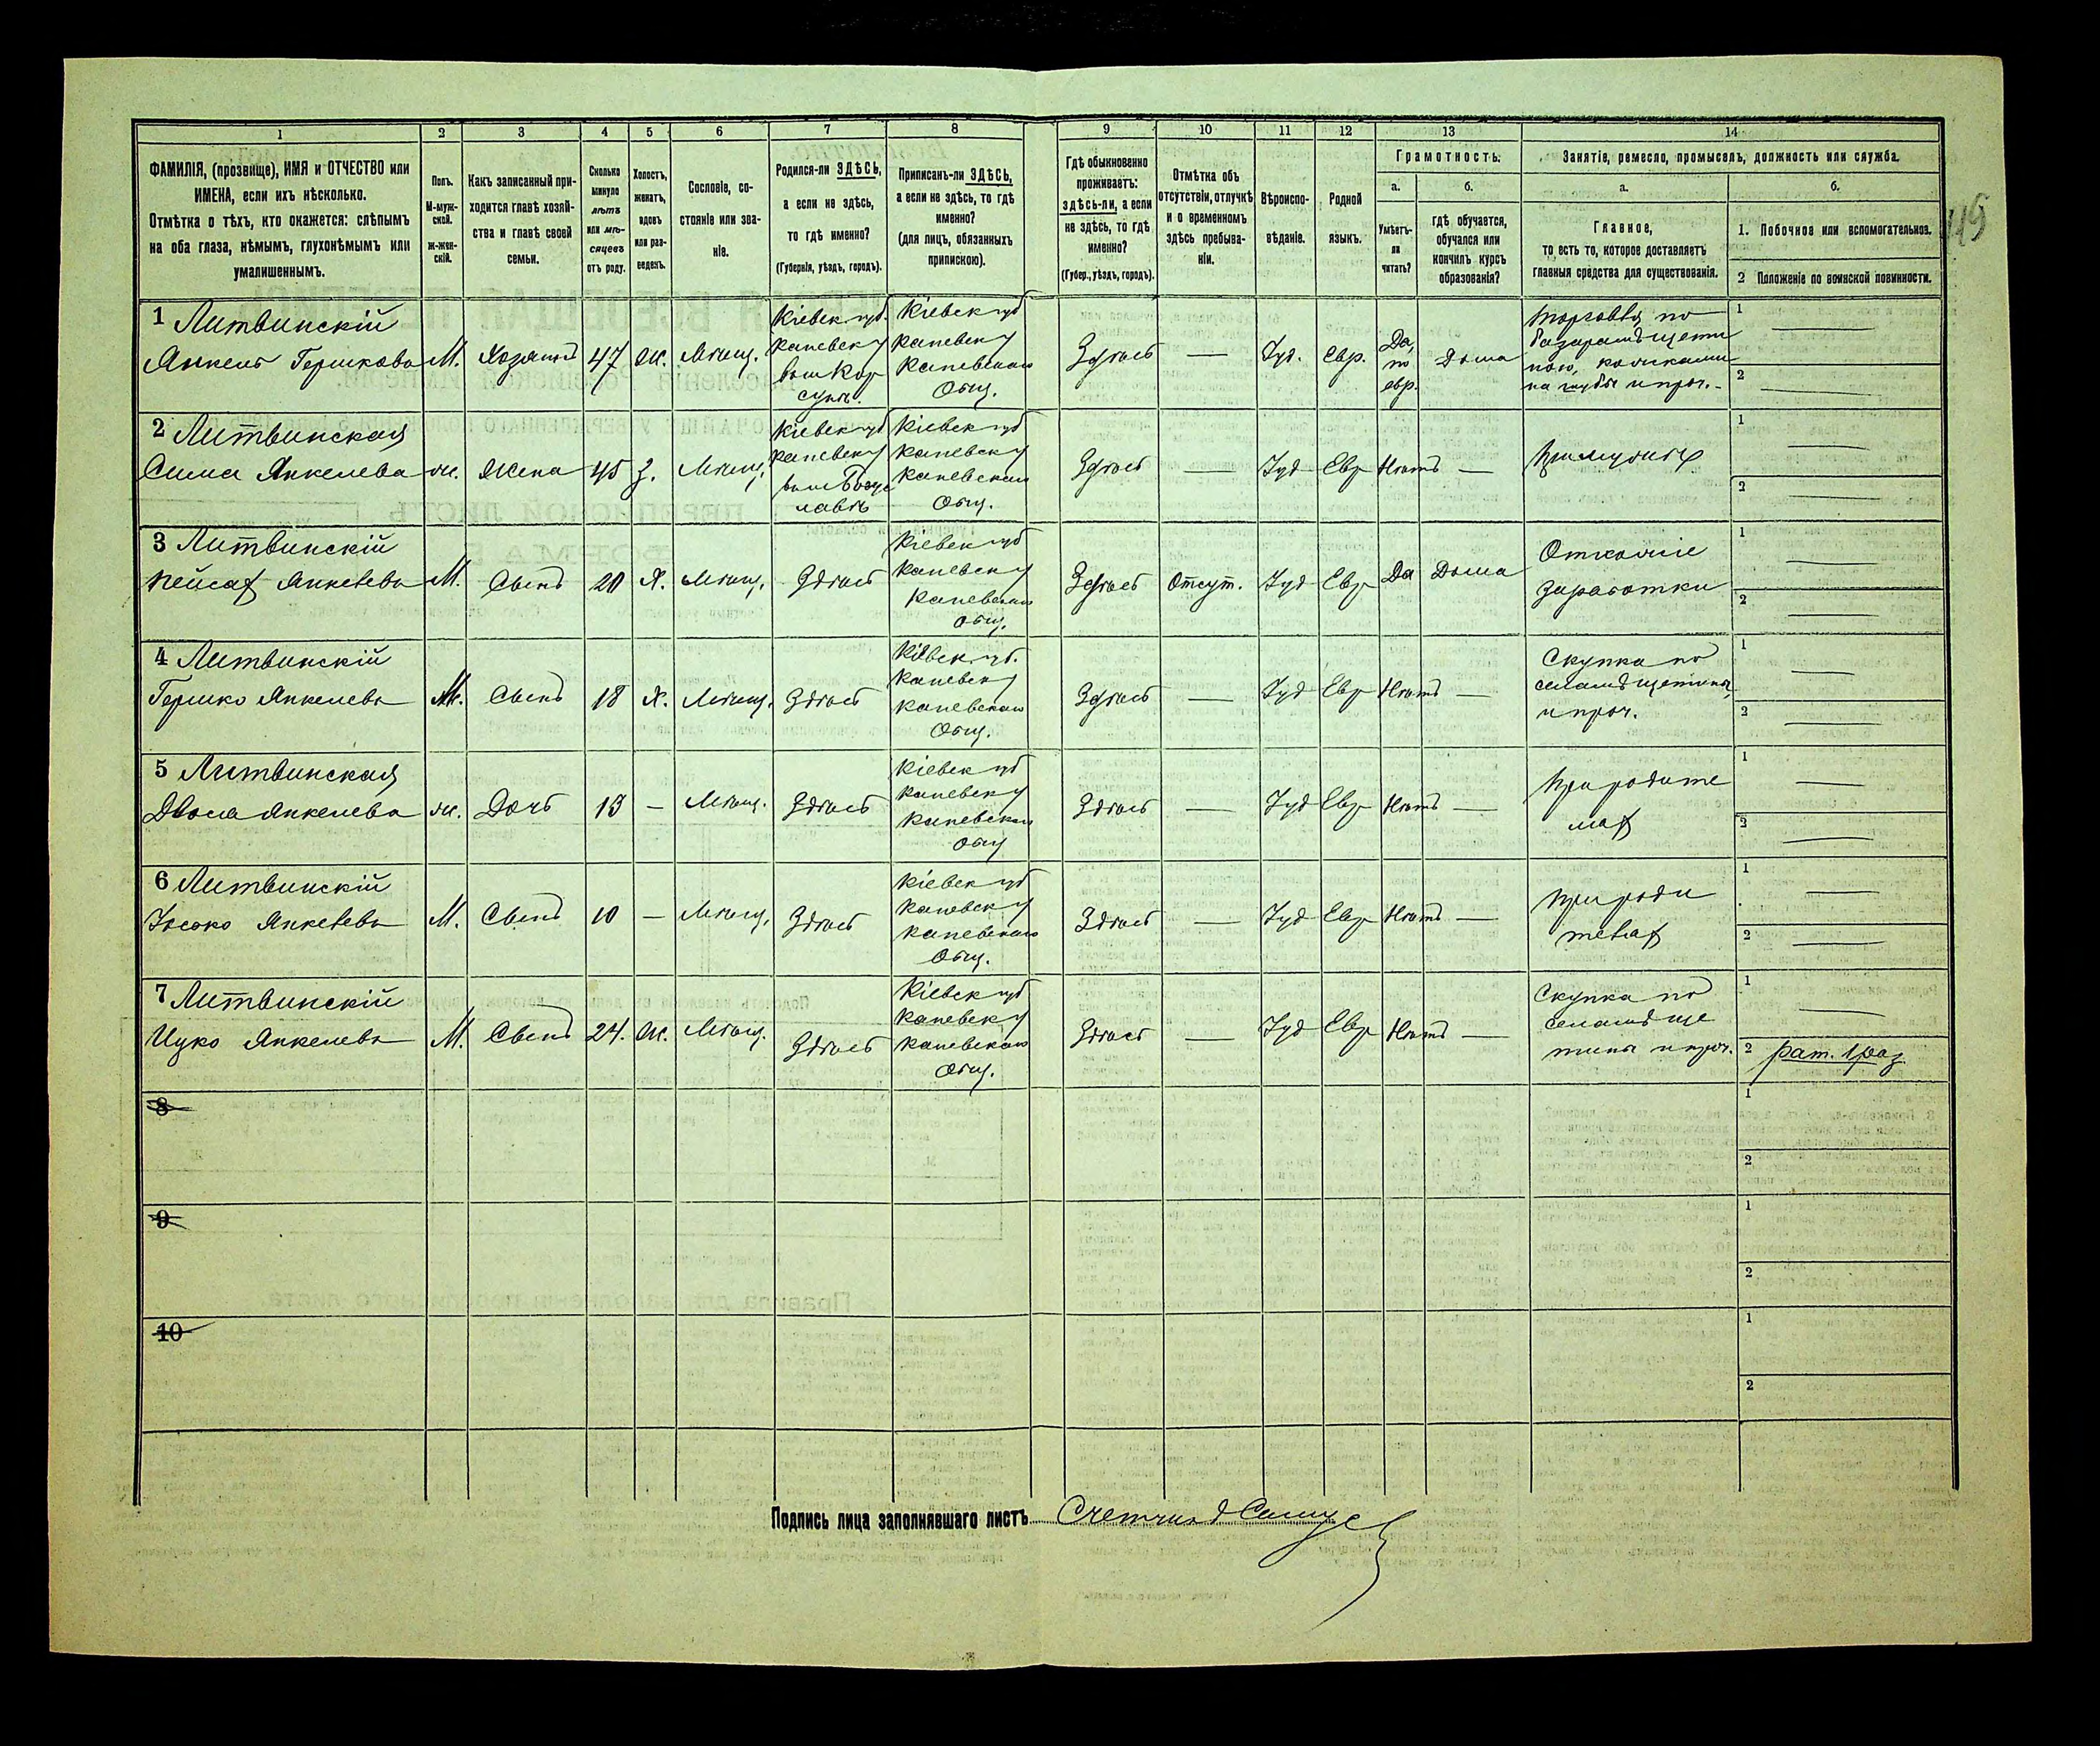 1 2 3 4 5 6 7 8 9 10 11 12 13 14
ФАМИЛІЯ, (прозвище), ИМЯ и ОТЧЕСТВО или
ИМЕНА, если ихъ нѣсколько.
Отмѣтка о тѣхъ, кто окажется: слѣпымъ
на оба глаза, нѣмымъ, глухонѣмымъ или
умалишеннымъ.
Полъ.
М-муж-
ской.
ж-жен-
скій.
Какъ записанный при-
ходится главѣ хозяй-
ства и главѣ своей
семьи.
Сколько
минуло
лѣтъ
или мѣ-
сяцевъ
отъ роду.
Холостъ,
женатъ,
вдовъ
или раз-
веденъ.
Сословіе, со-
стояніе или зва-
ніе.
Родился-ли ЗДѢСЬ,
а если не здѣсь,
то гдѣ именно?
(Губернія, уѣздъ, городъ).
Приписанъ-ли ЗДѢСЬ,
а если не здѣсь, то гдѣ
именно?
(для лицъ, обязанныхъ
припискою).
Гдѣ обыкновенно
проживаетъ:
здѣсь-ли, а если
не здѣсь, то гдѣ
именно?
(Губер., уѣздъ, городъ).
Отмѣтка объ
отсутствіи, отлучкѣ
и о временномъ
здѣсь пребыва-
ніи.
Вѣроиспо-
вѣданіе.
Родной
языкъ.
Грамотность.
а.
Умѣетъ-
ли
читать?
б.
гдѣ обучается,
обучался или
кончилъ курсъ
образованія?
Занятіе, ремесло, промыселъ, должность или служба.
а.
Главное,
то есть то, которое доставляетъ
главныя средства для существованія.
б.
1. Побочное или вспомогательное.
2 Положеніе по воинской повинности.
1 Литвинскій
Янкель Гершковъ
М.
Хозяинъ
47
Мѣщ.
Кіевск губ.
Каневск у
Кіевск губ
Каневск у
Каневскаго
Общ.
Здѣсь
—
Іуд.
Евр.
Да,
по
евр.
Дома
Торговля по
базарамъ щети
ною,
и проч.
1 —
2 —
2 Литвинская
Сима Янкелева
ж.
Жена
45
З.
Мѣщ.
Кіевск губ
Каневск у
Богус
лавѣ
Кіевск губ
Каневск у
Каневскаго
Общ.
Здѣсь
—
Іуд
Евр
Нѣтъ
—
При мужѣ
1 —
2 —
3 Литвинскій
Пейсах Янкелевъ
М.
Сынъ
20
Х.
Мѣщ.
Здѣсь
Кіевск губ
Каневск у
Каневскаго
Общ.
Здѣсь
Отсут.
Іуд
Евр
Да
Дома
заработки
1 —
2 —
4 Литвинскій
Гершко Янкелевъ
М.
Сынъ
18
Х.
Мѣщ.
Здѣсь
Кіевск губ.
Каневск у
Каневскаго
Общ.
Здѣсь
—
Іуд
Евр
Нѣтъ
—
Скупка по
селамъ щетины
и проч.
1 —
2 —
5 Литвинская
Двося Янкелева
ж.
Дочь
13
—
Мѣщ.
Здѣсь
Кіевск губ
Каневск у
Каневскаго
Общ
Здѣсь
—
Іуд
Евр
Нѣтъ
—
При родите
лях
1 —
2 —
6 Литвинскій
Іосько Янкелевъ
М.
Сынъ
10
—
Мѣщ.
Здѣсь
Кіевск губ
Каневск у
Каневскаго
Общ.
Здѣсь
—
Іуд
Евр
Нѣтъ
—
При роди
телях
1 —
2 —
7 Литвинскій
Ицко Янкелевъ
М.
Сынъ
24.
Мѣщ.
Здѣсь
Кіевск губ
Каневск у
Каневскаго
Общ.
Здѣсь
—
Іуд
Евр
Нѣтъ
—
Скупка по
селамъ ще
тины и проч.
1 —
2 рат. 1 раз
8
1
2
9
1
2
10
1
2
Подпись лица заполнявшаго листъ Счетчикъ